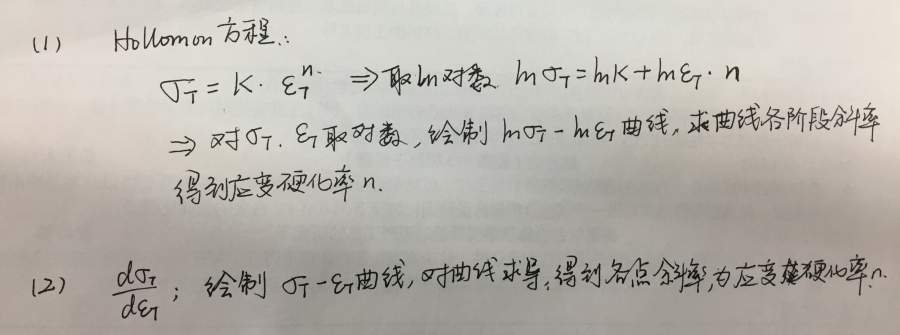 (1) Hollomon 方程:
σT = K · εT^n. ⇒取ln对数 lnσT = lnK + lnεT · n
⇒ 对σT. εT取对数,绘制 lnσT - lnεT曲线,求曲线各阶段斜率
得到应变硬化率 n.
(2) dσT/dεT ; 绘制 σT - εT曲线,对曲线求导,得到各点斜率,为应变硬化率n.